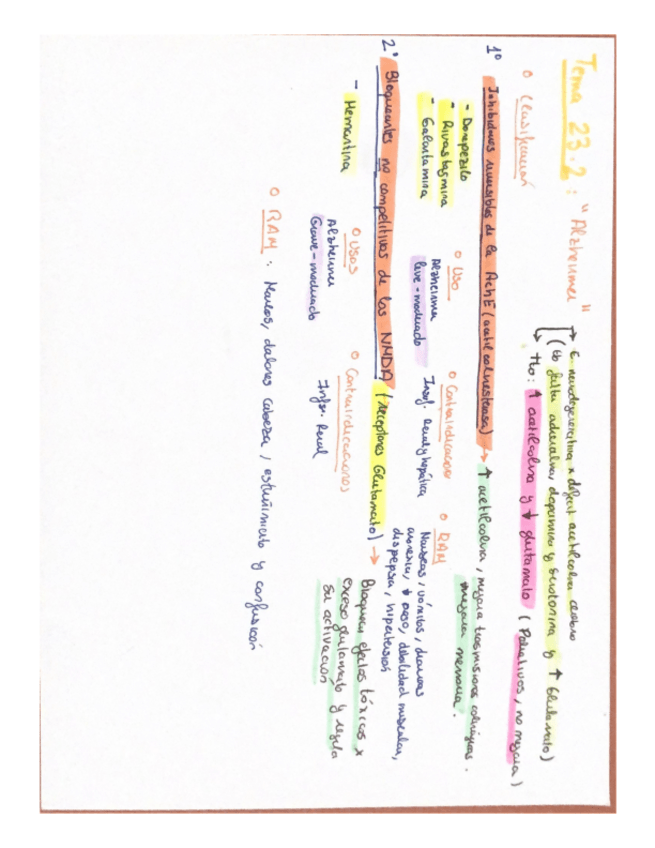 Tema 23.2: "Alzheimer"
E. neurodegenerativa x déficit acetilcolina cerebro
(tb falta adrenalina, dopamina y serotonina y ↑ Glutamato)
tto: ↑ acetilcolina y ↓ glutamato (Paliativos, no mejora)
o Clasificación
1º Inhibidores reversibles de la AchE (acetilcolinesterasa) → ↑ acetilcolina, mejora transmisiones colinérgicas.
mejora memoria.
- Donepezilo
- Rivastagmina
- Galantamina
o Uso
Alzheimer
leve-moderado
o Contraindicaciones
Insuf. Renal y hepática
o RAM
Nauseas, vómitos, diarreas
anorexia, ↓ peso, debilidad muscular,
dispepsia, hipertensión
2º Bloqueantes no competitivos de los NMDA (receptores Glutamato) → Bloquean efectos tóxicos x
exceso glutamato y regula
su activación
- Memantina
o Usos
Alzheimer
Grave-moderado
o Contraindicaciones
Insf. Renal
o RAM: Mareos, dolores cabeza, estreñimiento y confusión